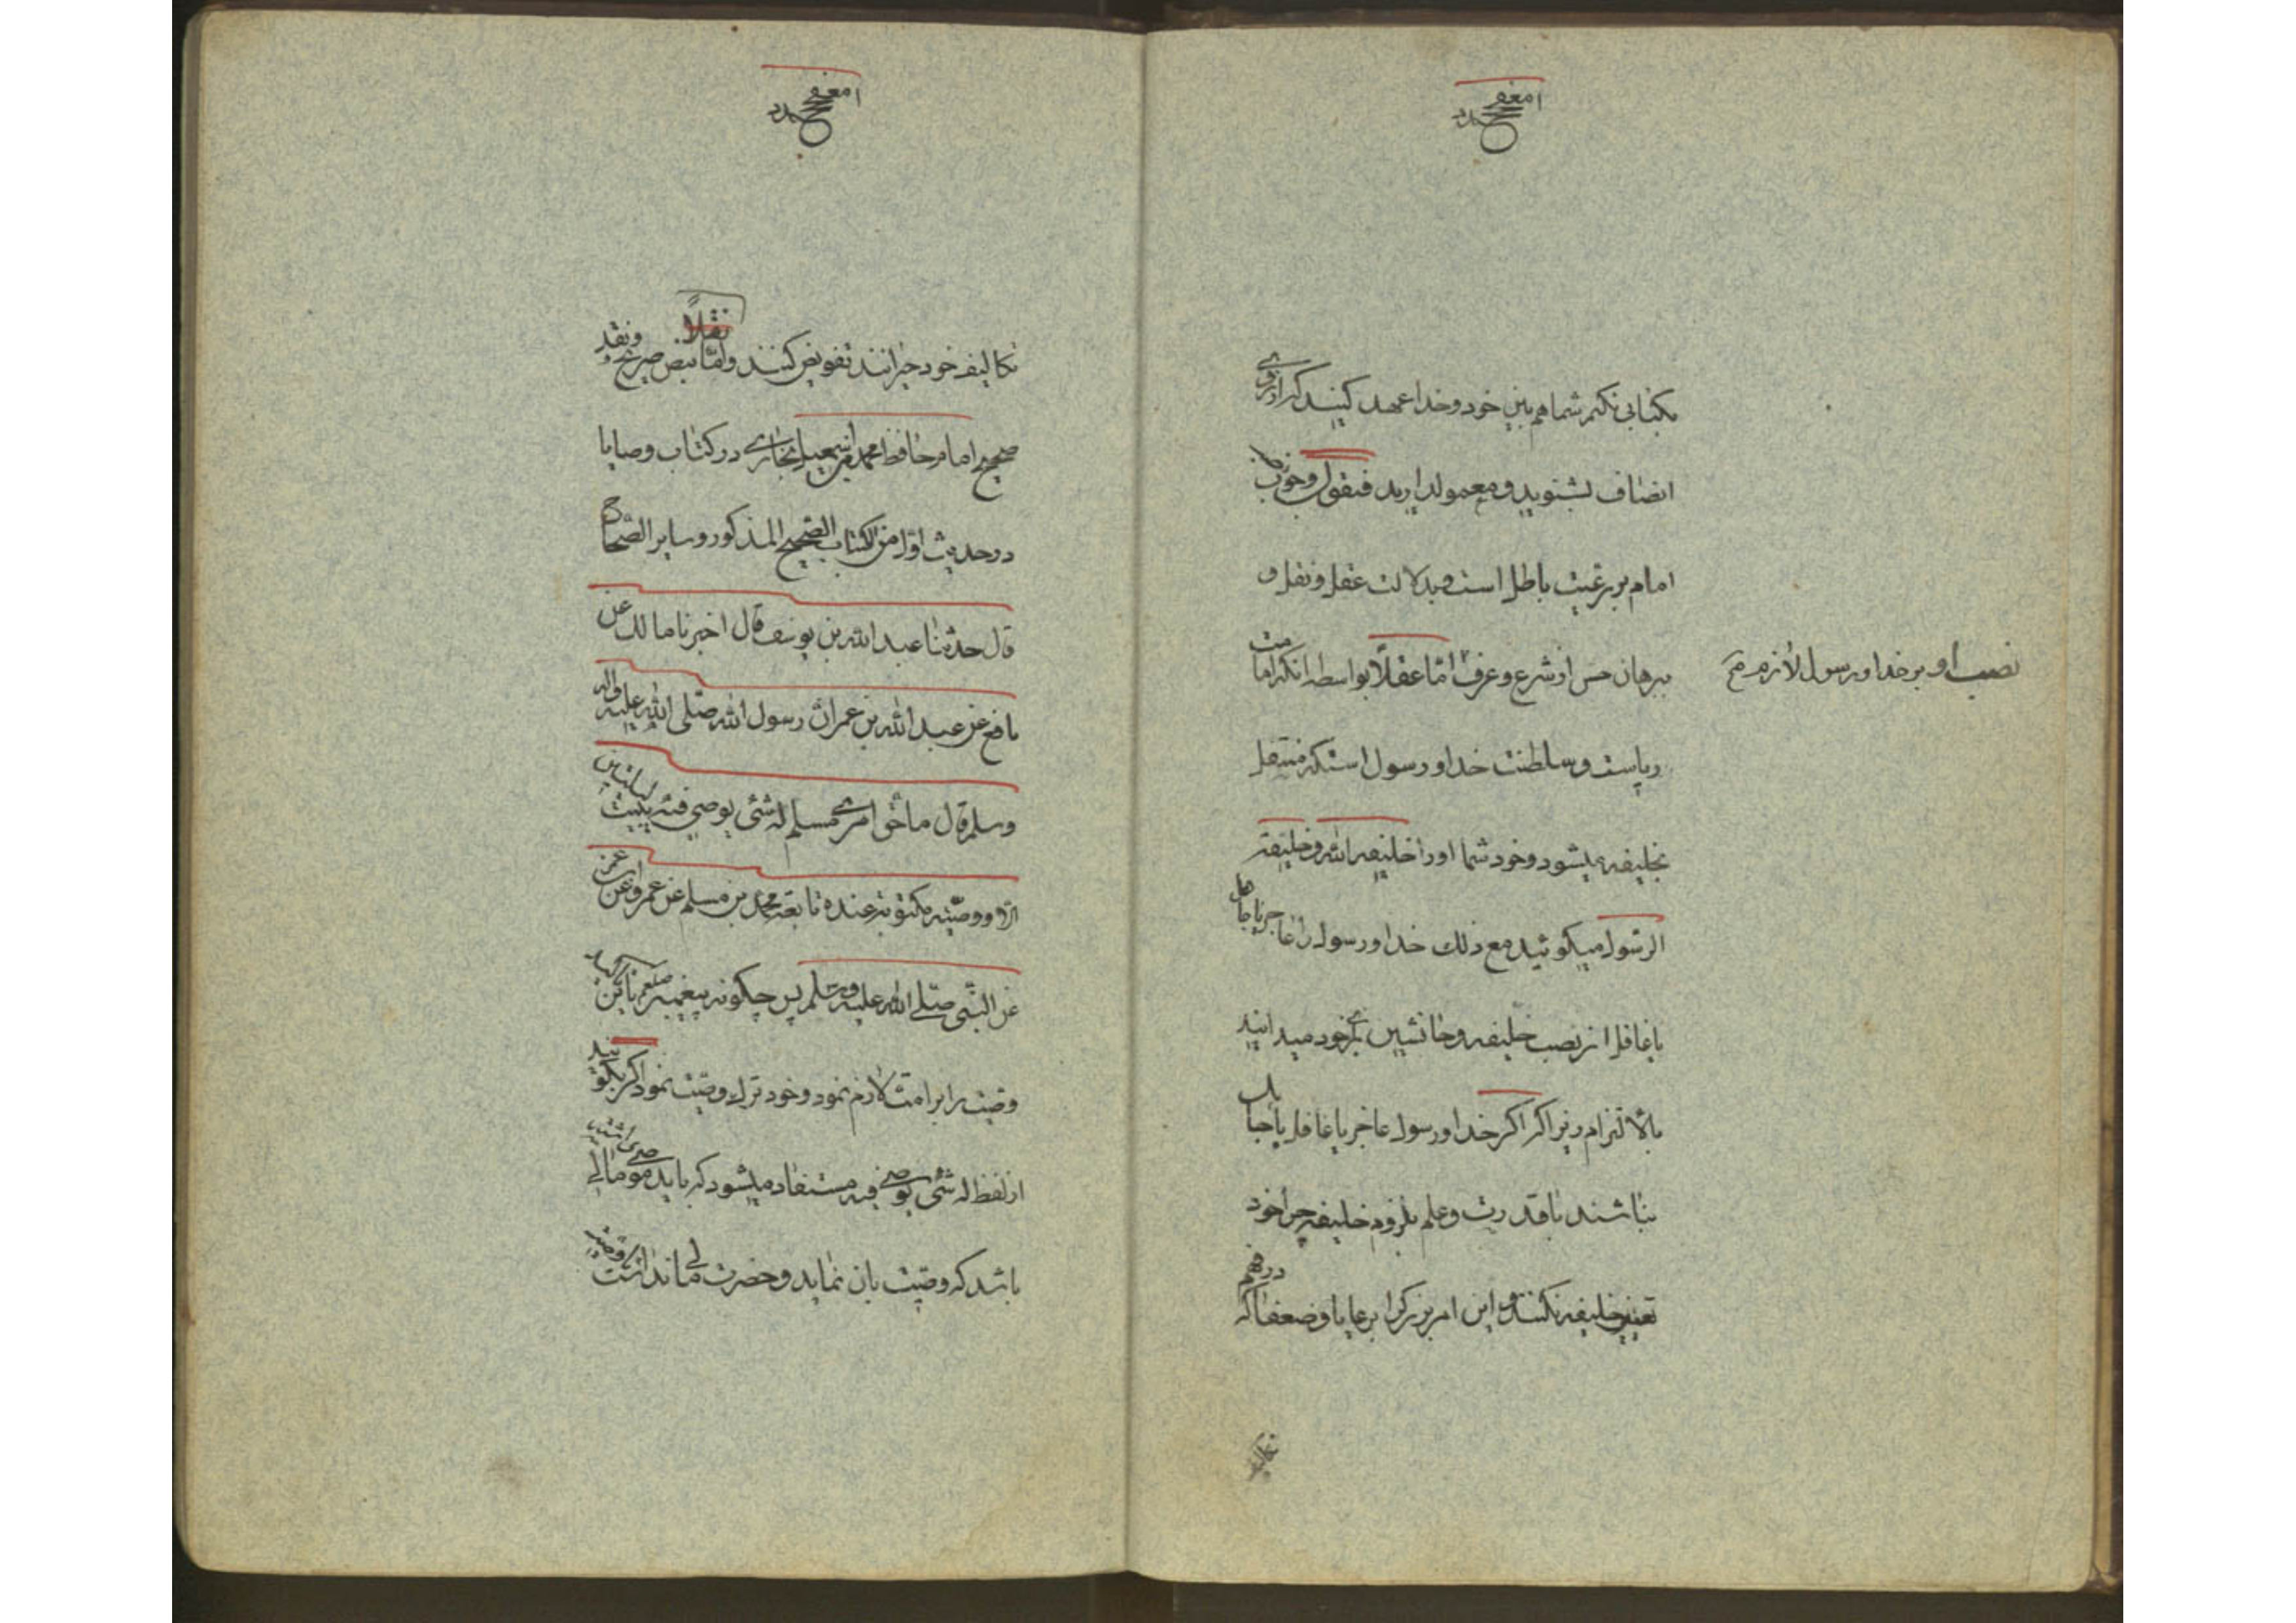 بکتبانی نکنم شما هم بین خود و خدا عهد کنید که از روی
انصاف بشنوید و معمول دارید فنقول وجوب نصب
امام بر رعیت باطل است بدلالت عقل و نقل و
ببرهان حس از شرع و عرف امّا عقلاً بواسطه انکه امامت
نصب او بر خدا و رسول لازم صح
ریاست و سلطنت خدا و رسول استکه منتقل
بخلیفه میشود و خود شما او را خلیفه الله و خلیفة
الرسول میکوئید مع ذلک خدا و رسول را عاجز یا جاهل
یا غافل از نصب خلیفه و جانشین برای خود میدانید
بالالتزام زیرا که اکر خدا و رسول عاجز یا غافل یا جاهل
نباشند با قدرت و علم بلزوم خلیفه چرا خود
تعیین خلیفه نکنند و این امر بزرکرا برعایا و ضعفا که در فهم
تکالیف خود حیرانند تفویض کنند و امّا نقلاً بنص صریح و نقد
صحیح امام حافظ محمد بن اسمعیل بخاری در کتاب وصایا
در حدیث اوّل من الکتاب الصحیح المذکور و سایر الصّحاح
قال حدثنا عبد الله بن یوسف قال اخبرنا مالک عن
نافع عن عبد الله بن عمر انّ رسول الله صلّی الله علیه واله
وسلم قال ما حق امرئ مسلم له شئی یوصی فیه یبیت لیلتین
الّا و وصیّته مکتوبة عنده تابعه محمد بن مسلم عن عمرو عن ابن عمر
عن النبّی صلّی الله علیه وسلم پس چکونه پیغمبر صلعم با این تاکید
وصیت را بر امت لازم نمود و خود ترک وصیت نمود اکر بکوئید
از لفظ له شئی یوصی فیه مستفاد میشود که باید موصی مالی داشته
باشد که وصیّت بان نماید و حضرت مالی نداشت